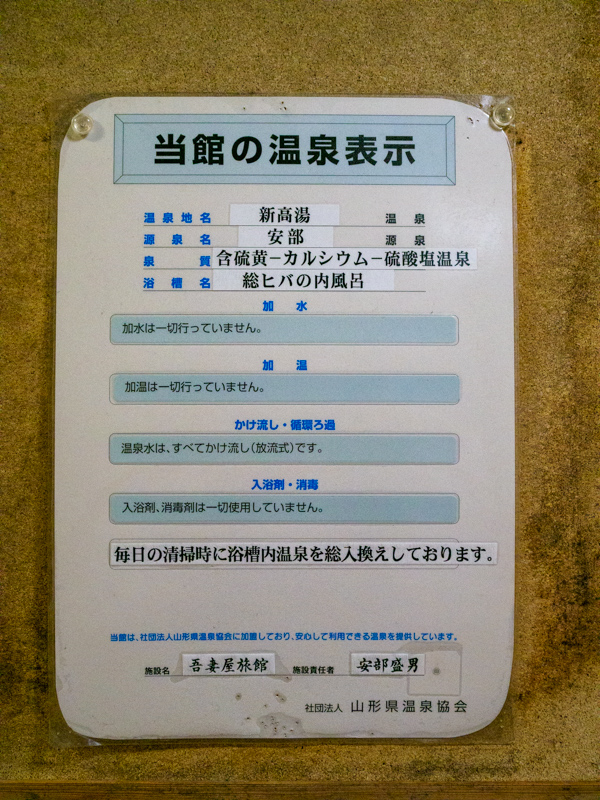 当館の温泉表示
温泉地名 新高湯 温泉
源泉名 安部 源泉
泉質 含硫黄−カルシウム−硫酸塩温泉
浴槽名 総ヒバの内風呂
加水
加水は一切行っていません。
加温
加温は一切行っていません。
かけ流し・循環ろ過
温泉水は、すべてかけ流し(放流式)です。
入浴剤・消毒
入浴剤、消毒剤は一切使用していません。
毎日の清掃時に浴槽内温泉を総入換えしております。
当館は、社団法人山形県温泉協会に加盟しており、安心して利用できる温泉を提供しています。
施設名 吾妻屋旅館 施設責任者 安部盛男
社団法人 山形県温泉協会